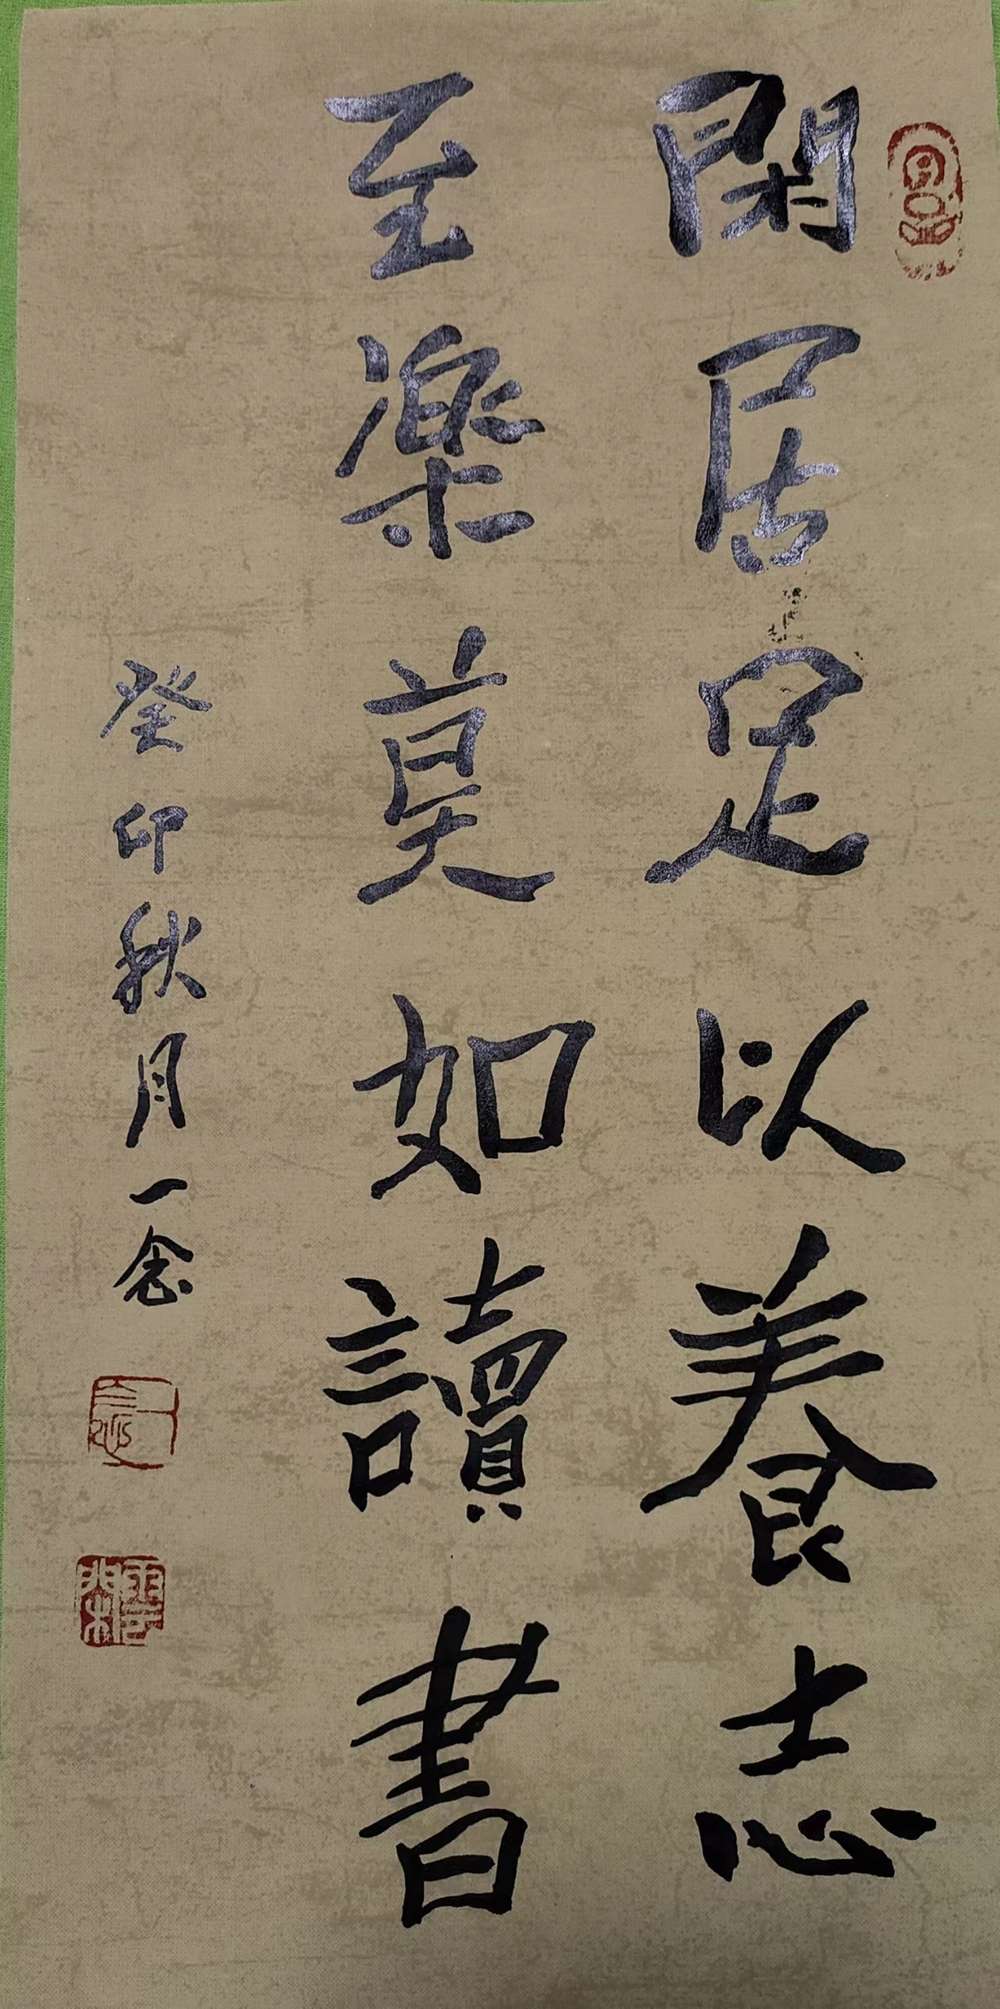 閑居足以養志
至樂莫如讀書
癸卯秋月一念